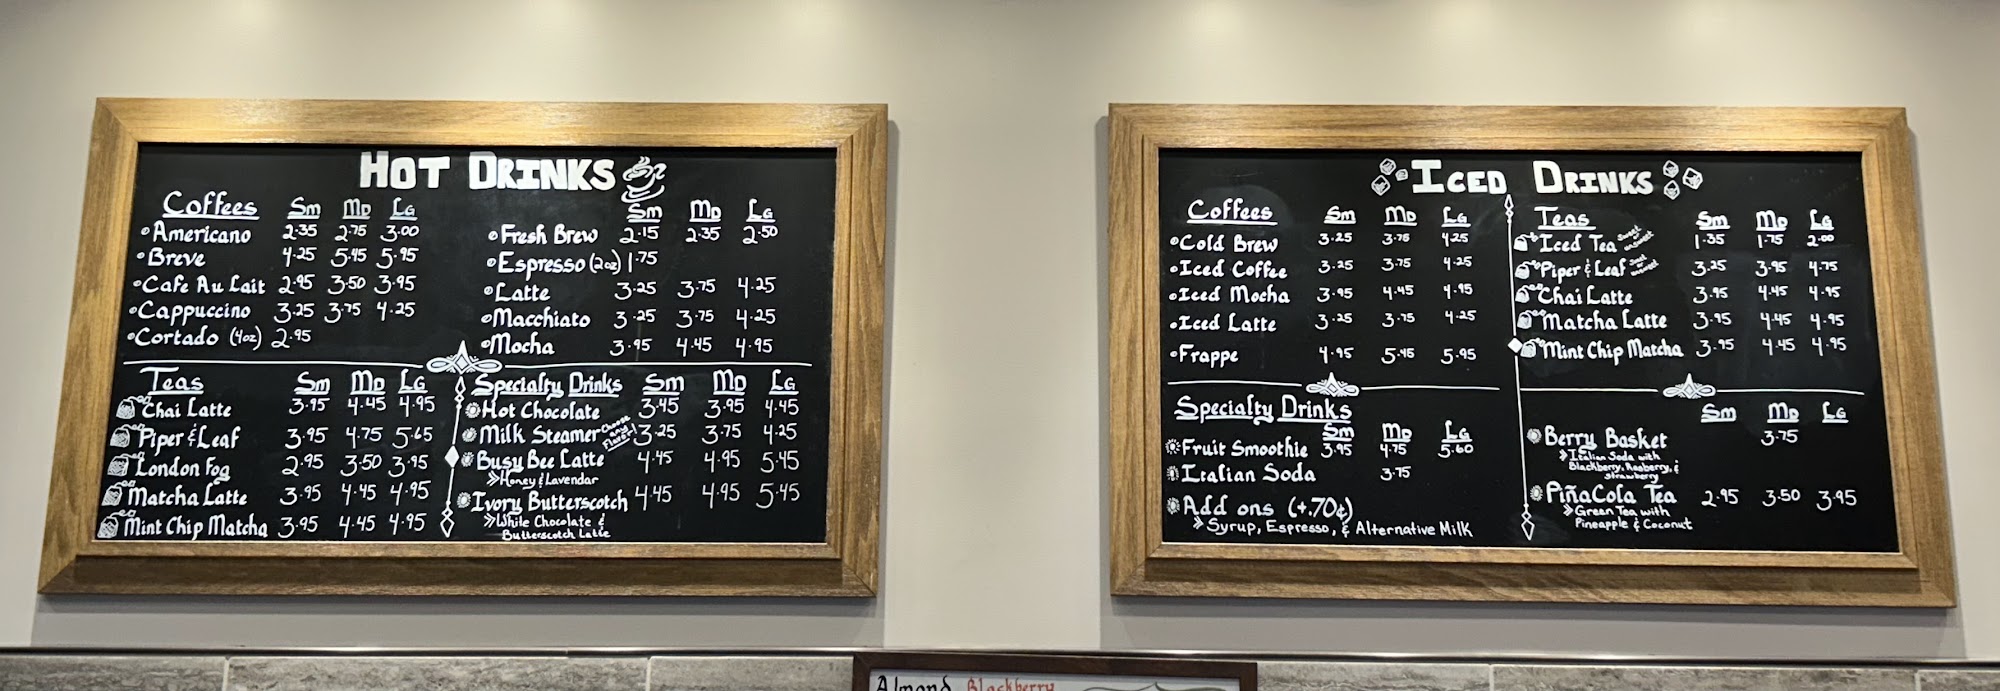 HOT DRINKS
Coffees Sm MD LG
Americano 2.35 2.75 3.00
Breve 4.25 5.45 5.95
Cafe Au Lait 2.95 3.50 3.95
Cappuccino 3.25 3.75 4.25
Cortado (4oz) 2.95
Sm MD LG
Fresh Brew 2.15 2.35 2.50
Espresso (2oz) 1.75
Latte 3.25 3.75 4.25
Macchiato 3.25 3.75 4.25
Mocha 3.95 4.45 4.95
Teas Sm MD LG
Chai Latte 3.95 4.45 4.95
Piper & Leaf 3.95 4.75 5.65
London Fog 2.95 3.50 3.95
Matcha Latte 3.95 4.45 4.95
Mint Chip Matcha 3.95 4.45 4.95
Specialty Drinks Sm MD LG
Hot Chocolate 3.45 3.95 4.45
Milk Steamer Choose any Flavor! 3.25 3.75 4.25
Busy Bee Latte 4.45 4.95 5.45
» Honey & Lavendar
Ivory Butterscotch 4.45 4.95 5.45
» White Chocolate &
Butterscotch Latte
ICED DRINKS
Coffees Sm MD LG
Cold Brew 3.25 3.75 4.25
Iced Coffee 3.25 3.75 4.25
Iced Mocha 3.95 4.45 4.95
Iced Latte 3.25 3.75 4.25
Frappe 4.95 5.45 5.95
Teas Sm MD LG
Iced Tea Sweet or unsweet 1.35 1.75 2.00
Piper & Leaf Sweet or unsweet 3.25 3.95 4.75
Chai Latte 3.95 4.45 4.95
Matcha Latte 3.95 4.45 4.95
Mint Chip Matcha 3.95 4.45 4.95
Specialty Drinks
Sm MD LG
Fruit Smoothie 3.95 4.75 5.60
Italian Soda 3.75
Add ons (+.70¢)
» Syrup, Espresso, & Alternative Milk
Sm MD LG
Berry Basket 3.75
» Italian Soda with
Blackberry, Rasberry, &
Strawberry
PiñaCola Tea 2.95 3.50 3.95
» Green Tea with
Pineapple & Coconut
Almond Blackberry